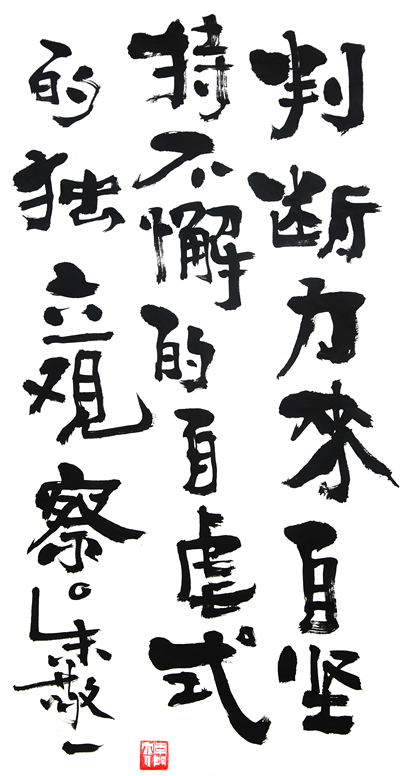 判断力來自坚
持不懈的自虐式
的独立观察。朱敬一